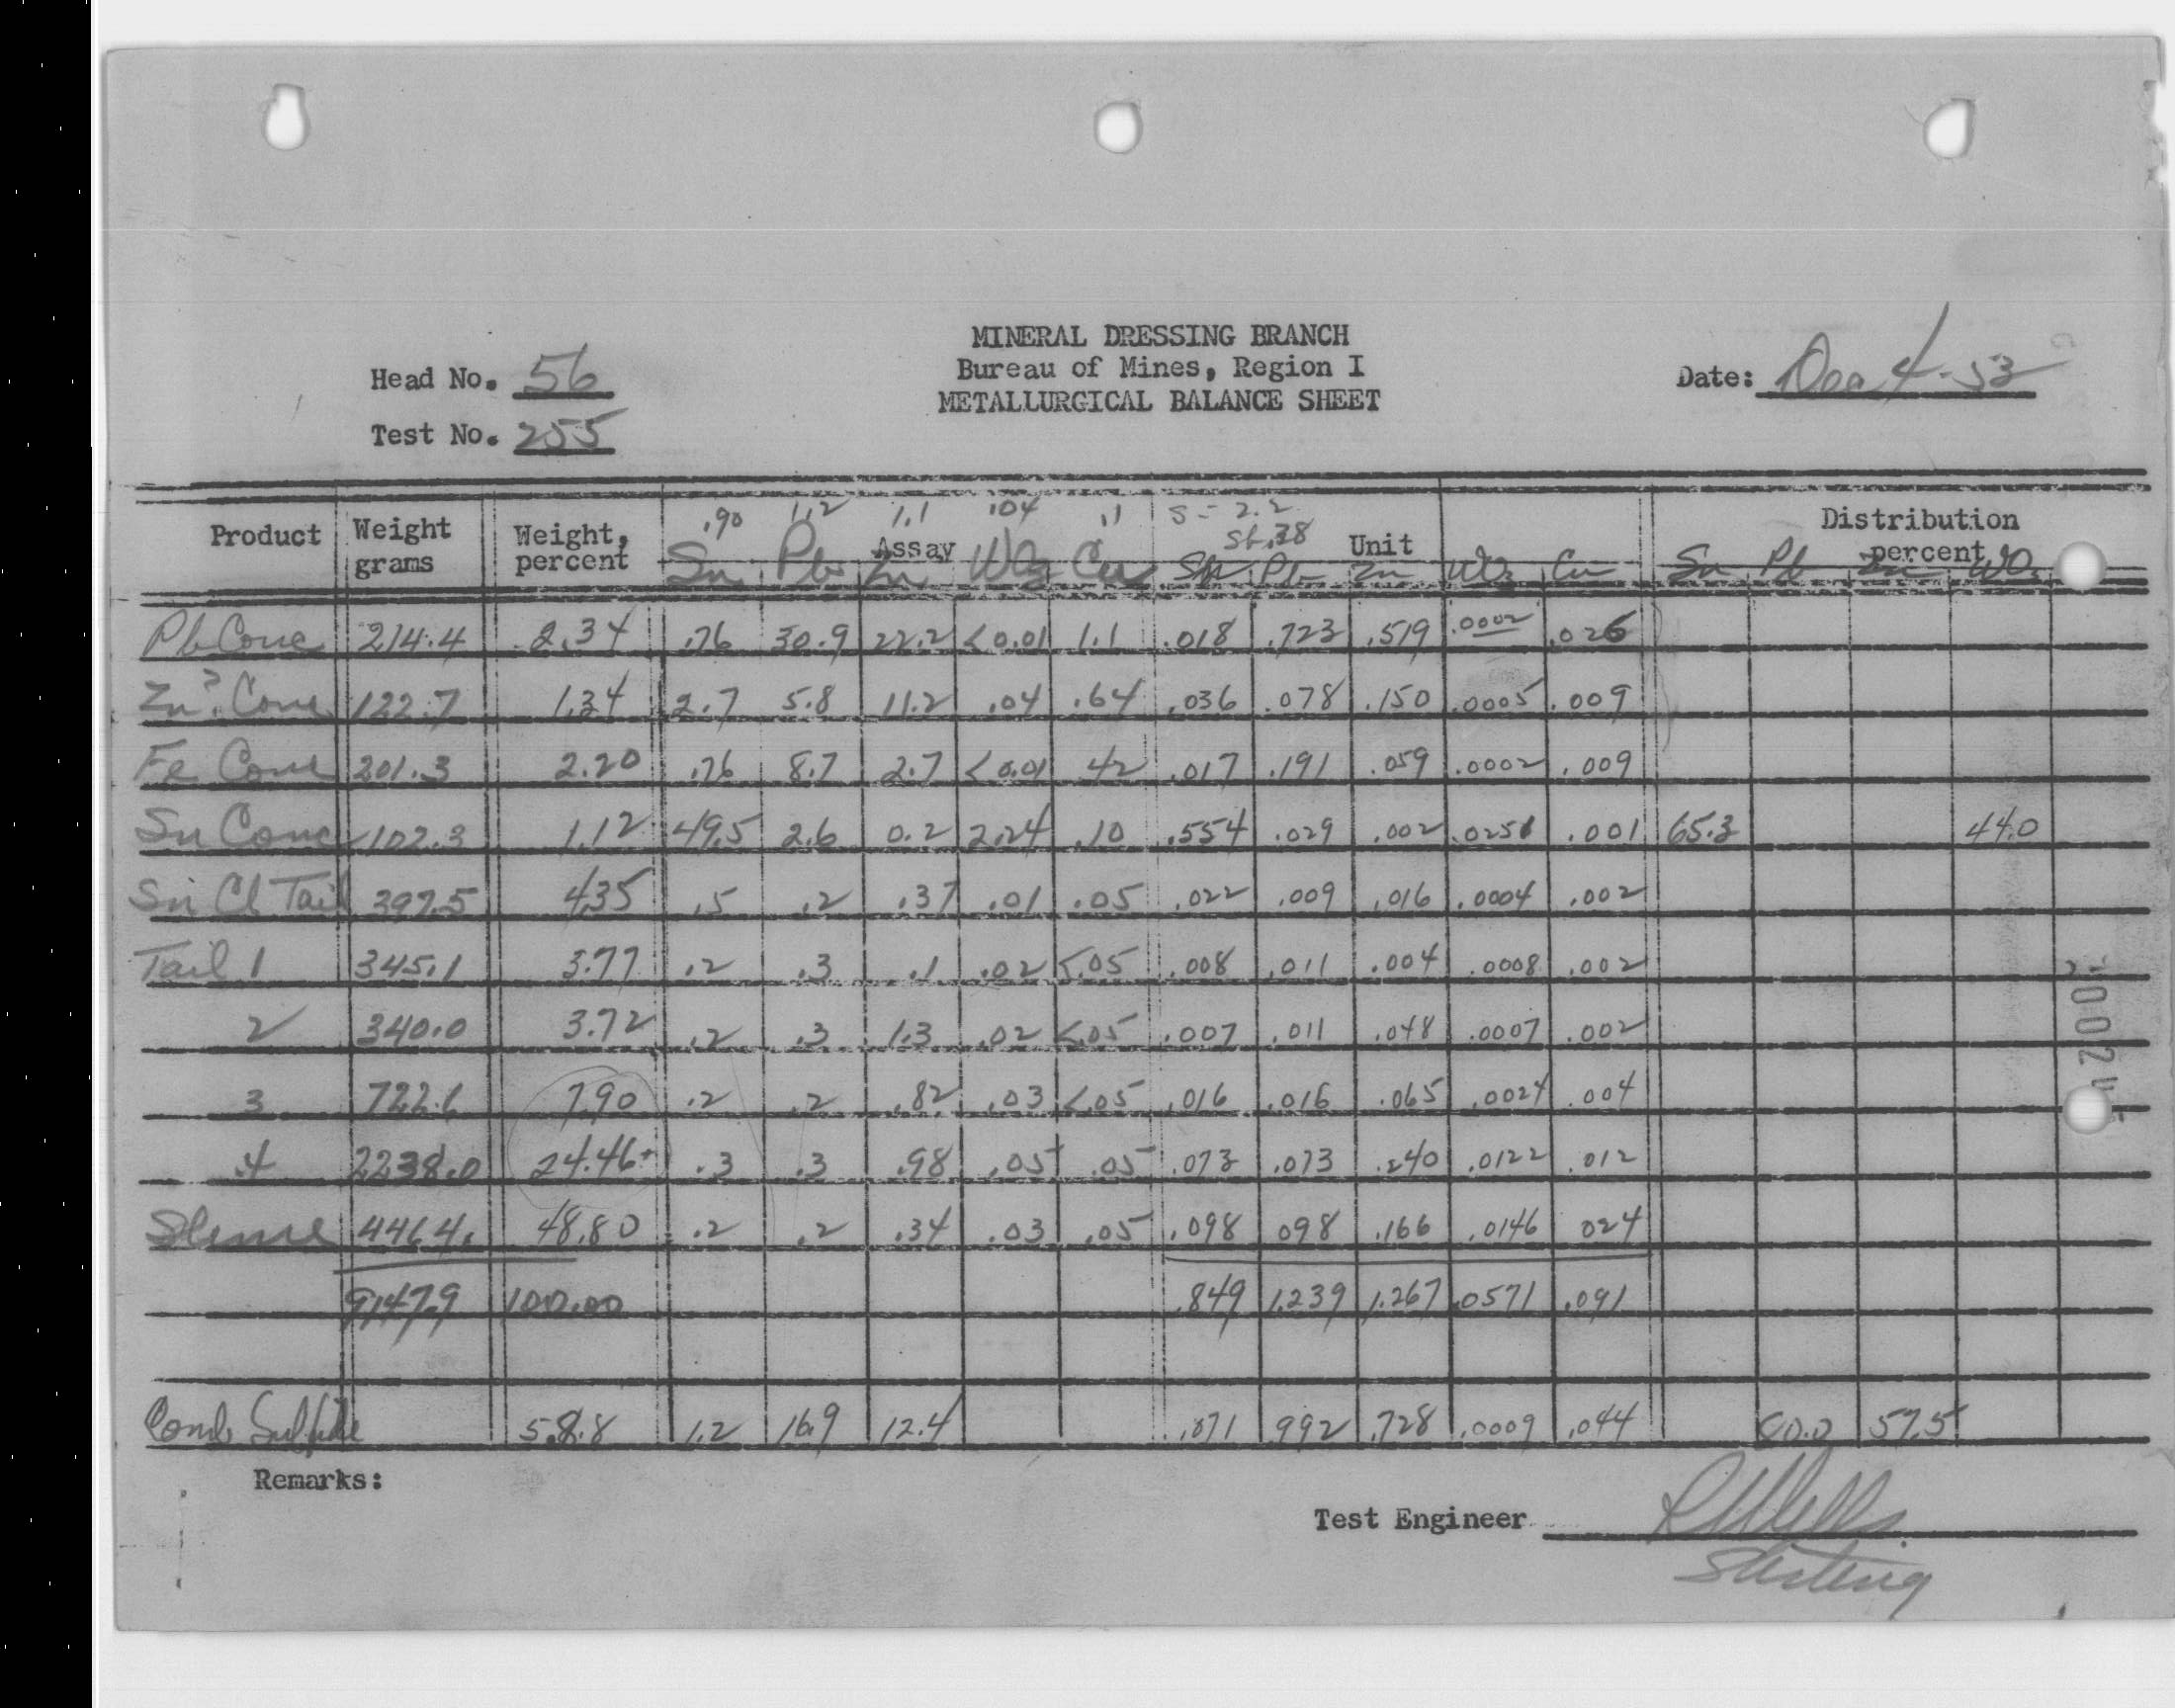 MINERAL DRESSING BRANCH
Head No. 56 Bureau of Mines, Region I Date: Dec 4-53
METALLURGICAL BALANCE SHEET
Test No. 255
.90 1.2 1.1 .04 .1 S = 2.2
Product Weight grams Weight, percent Assay Unit Distribution percent
Sn Pb Zn WO3 Cu Sn Pb Zn WO3 Cu Sn Pb Zn WO3
Pb Conc 214.4 2.34 .76 30.9 22.2 <0.01 1.1 .018 .723 .519 .0002 .026
Zn? Conc 122.7 1.34 2.7 5.8 11.2 .04 .64 .036 .078 .150 .0005 .009
Fe Conc 201.3 2.20 .76 8.7 2.7 <0.01 .42 .017 .191 .059 .0002 .009
Sn Conc 102.3 1.12 49.5 2.6 0.2 2.24 .10 .554 .029 .002 .0251 .001 65.3 44.0
Sn Cl Tail 397.5 4.35 .5 .2 .37 .01 .05 .022 .009 .016 .0004 .002
Tail 1 345.1 3.77 .2 .3 .1 .02 <.05 .008 .011 .004 .0008 .002
2 340.0 3.72 .2 .3 1.3 .02 <.05 .007 .011 .048 .0007 .002
3 722.6 7.90 .2 .2 .82 .03 <.05 .016 .016 .065 .0024 .004
4 2238.0 24.46 .3 .3 .98 .05 .05 .073 .073 .240 .0122 .012
Slime 4464. 48.80 .2 .2 .34 .03 .05 .098 098 .166 .0146 024
9147.9 100.00 .849 1.239 1.267 .0571 .091
Comb Sulfide 5.88 1.2 16.9 12.4 .071 992 .728 .0009 .044 57.5
Remarks:
Test Engineer